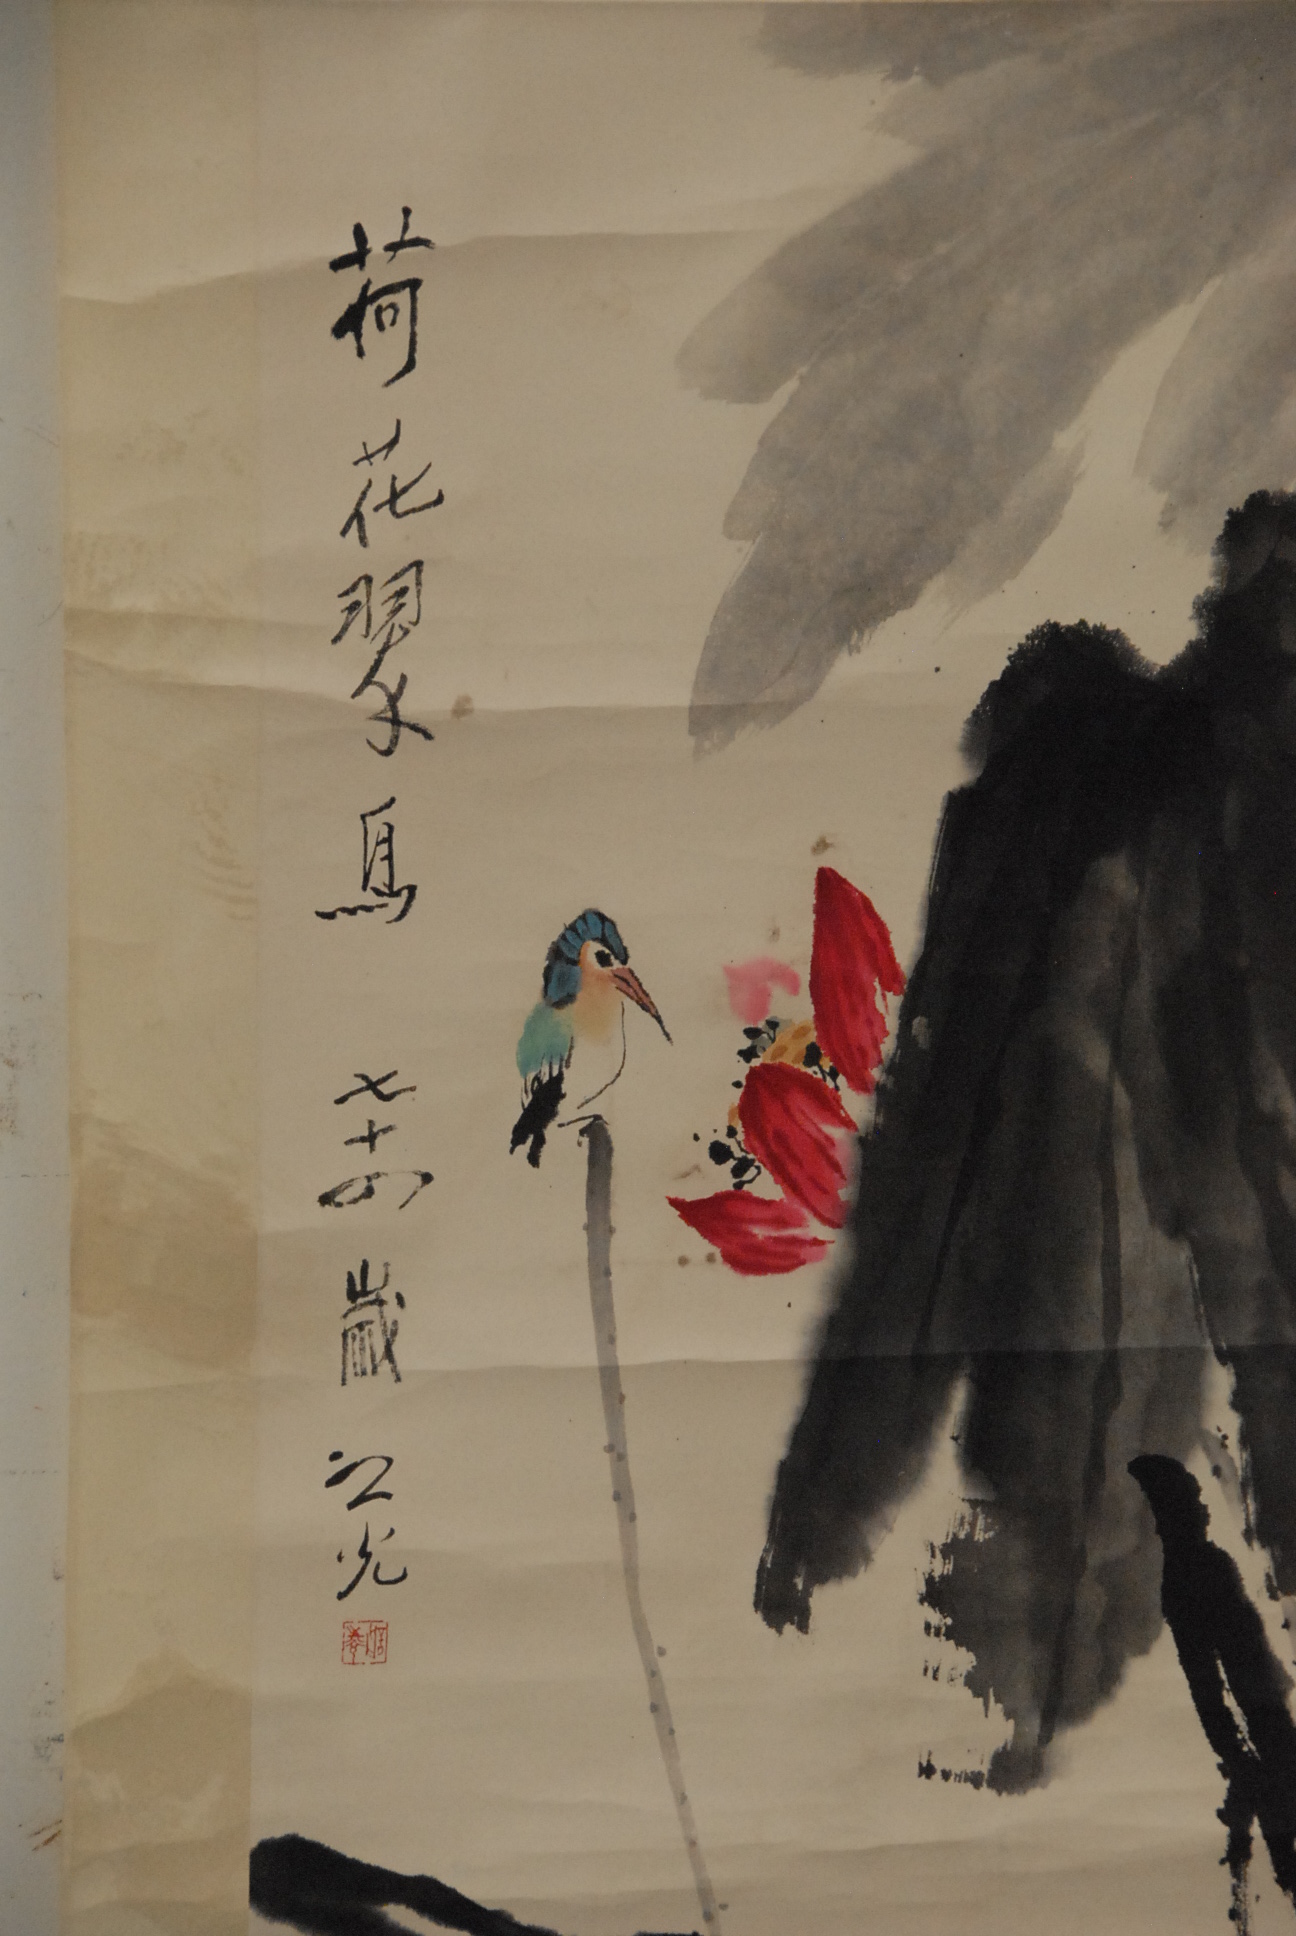 荷花翠鳥 七十四歲 江光